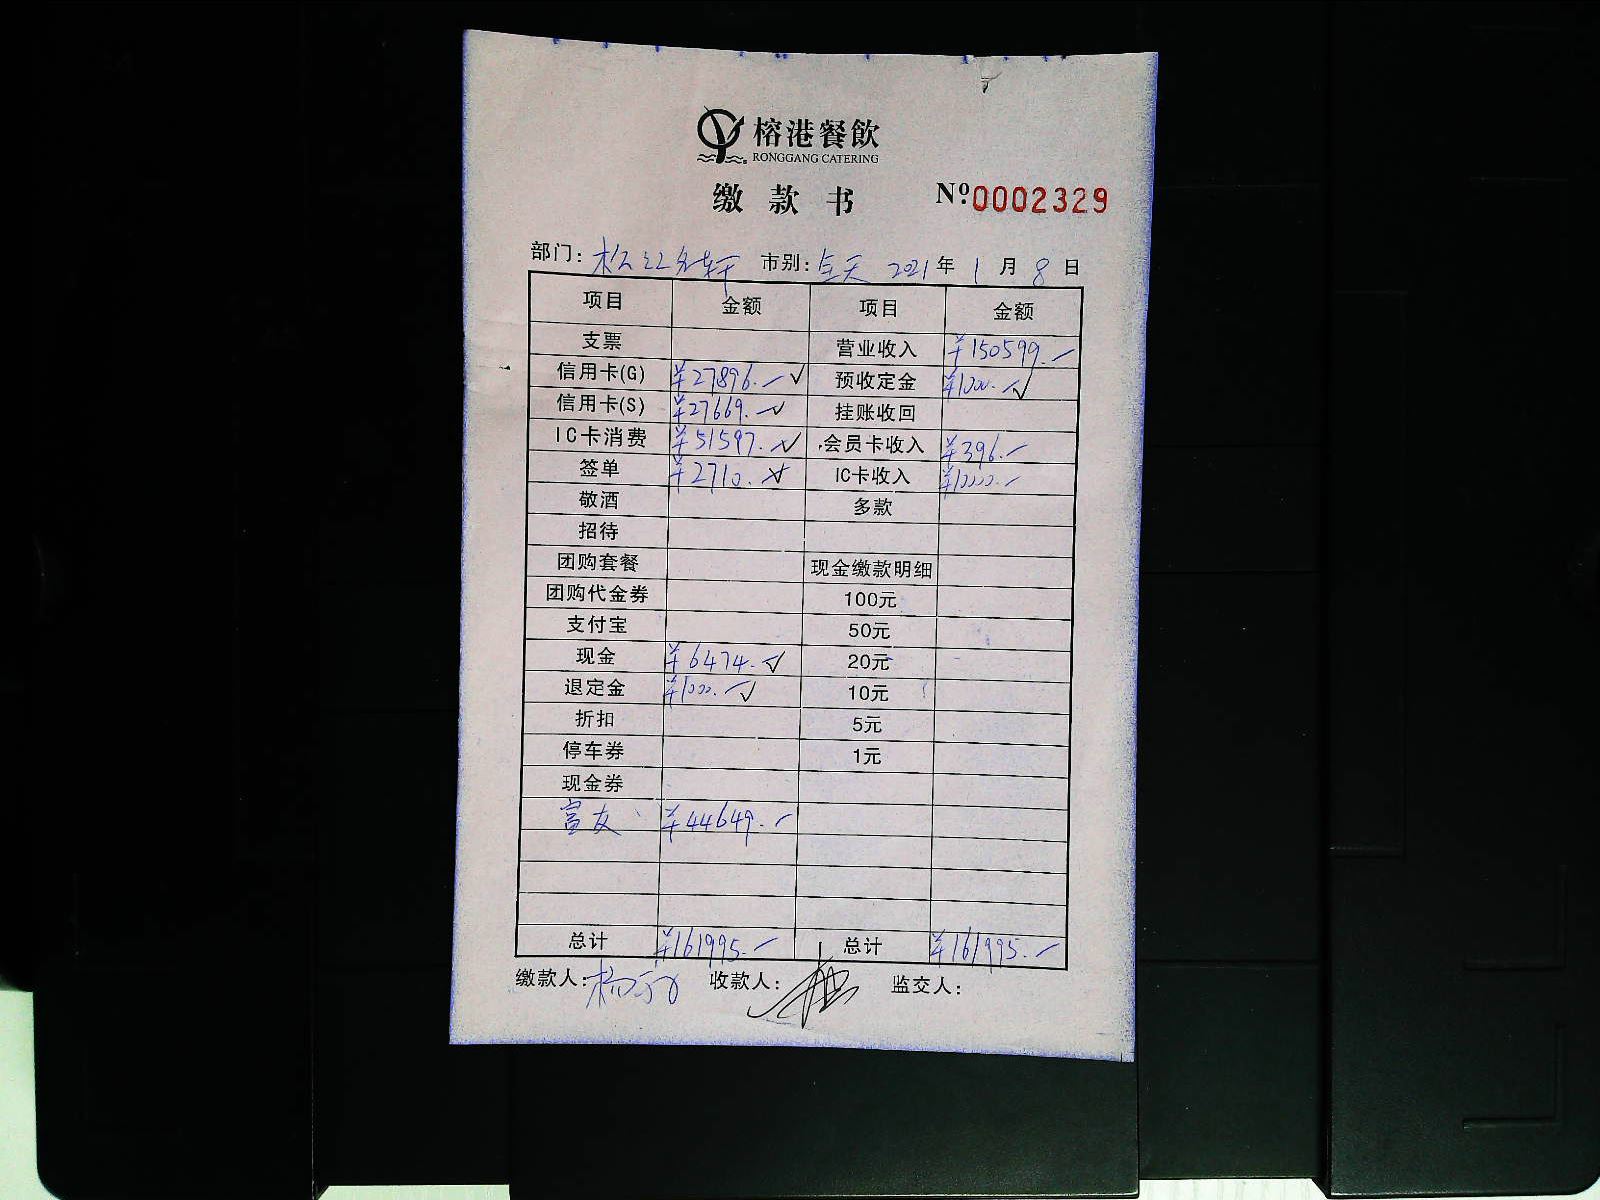 榕港餐飲
RONGGANG CATERING
缴款书 Nº 0002329
部门: 市别: 全天 2021年1月8日
项目 金额 项目 金额
支票 营业收入 ¥150599.-
信用卡(G) ¥27896.- 预收定金 ¥1000.-
信用卡(S) ¥27669.- 挂账收回
IC卡消费 ¥51597.- 会员卡收入 ¥396.-
签单 ¥2710.- IC卡收入 ¥10000.-
敬酒 多款
招待
团购套餐 现金缴款明细
团购代金券 100元
支付宝 50元
现金 ¥6474.- 20元
退定金 ¥1000.- 10元
折扣 5元
停车券 1元
现金券
富友 ¥44649.-
总计 ¥161995.- 总计 ¥161995.-
缴款人: 收款人: 监交人: